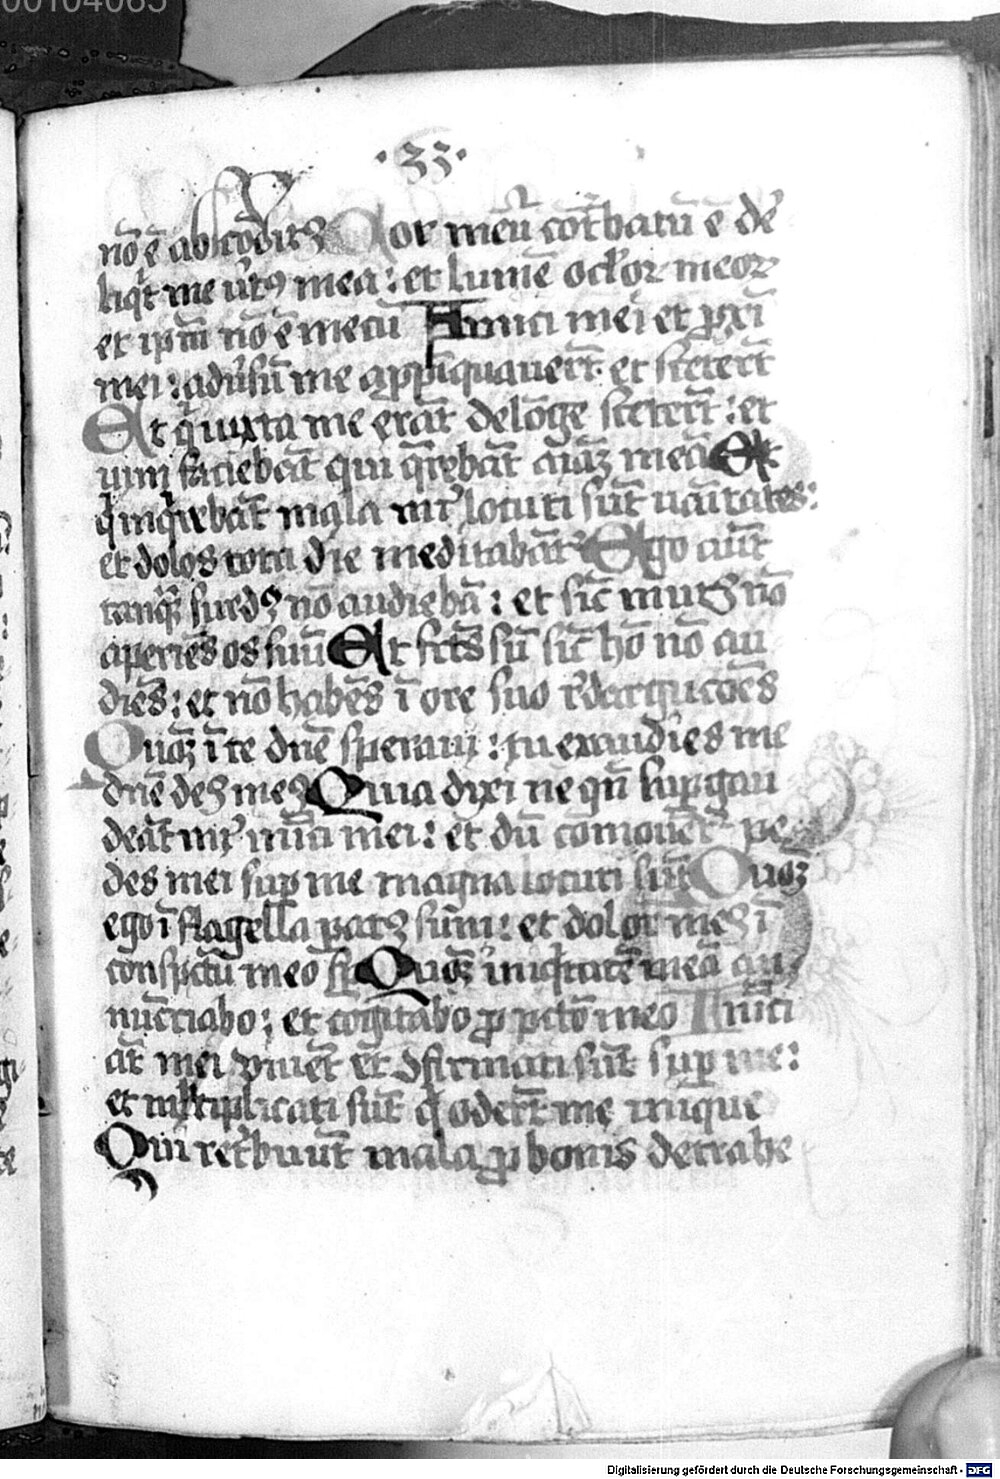 00104065
·33·
nō ē abscōditꝰ Cor meū cōtˀbatū ē de
liq̄t me uirtꝰ mea : et lumē oclˀoꝝ meoꝝ
et ip̄m nō ē mecū Amici mei et ꝓxi
mei : adūsū me appīquauerūt et stetert̄
Et q̄ iuxta me erāt de lōge stetert̄ : et
uim faciebāt qui q̄rebāt aīaꝫ meā Et
q̄ inq̄rebāt mala mˡ locuti sūt uāitates :
et dolos tota die meditabāt̄ Ego aūt
tanqꝫ surdꝰ nō audiebā : et sic̄ mutꝰ nō
aperiēs os suū Et fctˀs sū sic̄ hō nō au
diēs : et nō habēs ī ore suo rˀdargutiōes
Quoꝫ ī te dn̄e speraui : tu exaudies me
dn̄e deꝰ meꝰ Quia dixi ne qn̄ suꝑgau
deāt mˡ inīci mei : et dū cōmouēt̄ pe
des mei suꝑ me magna locuti sūt Quoꝫ
ego ī flagella paratꝰ sum : et dolor meꝰ ī
conspctū meo sꝑ Quoꝫ iniq̄tatē meā an
nūctiabo : et cogitabo ꝓ pctō meo Inīci
āt mei viuēt et ꝯfirmati sūt suꝑ me :
et mltiplicati sūt q̄ odert̄ me inique
Qui ret̄buūt mala ꝓ bonis detrahe
Digitalisierung gefördert durch die Deutsche Forschungsgemeinschaft - DFG